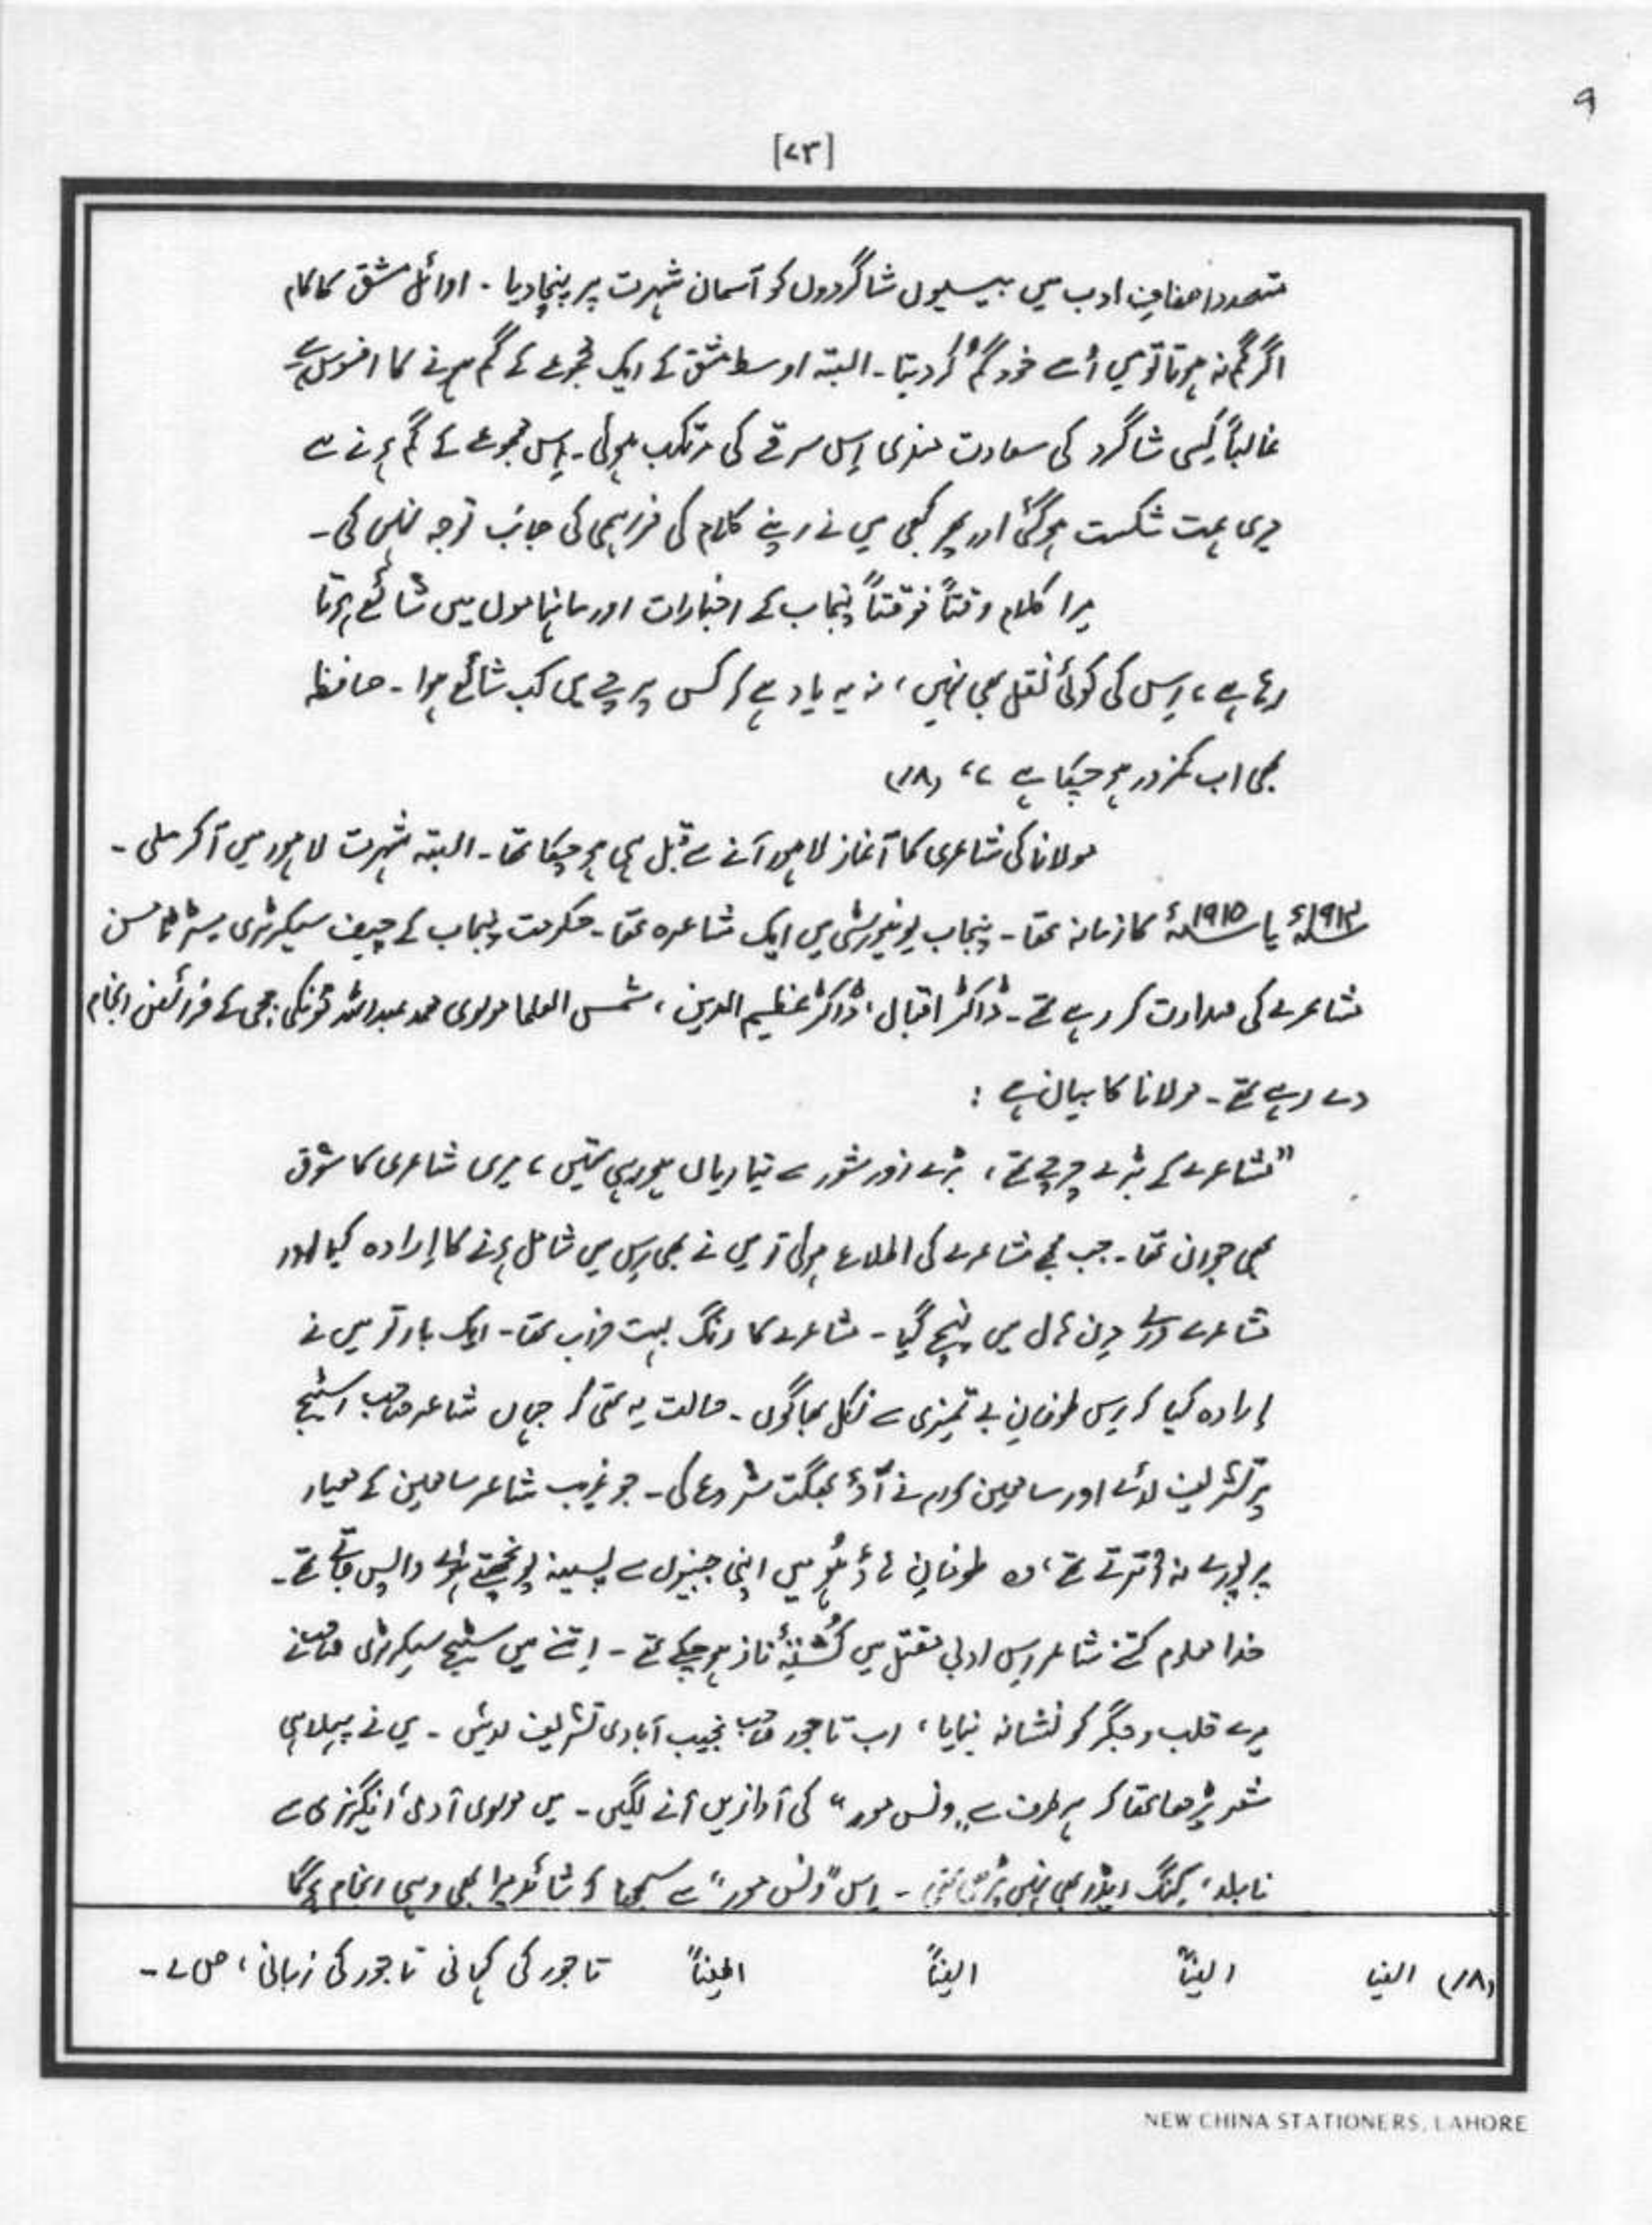 ۹
[۷۳]
متعدد اصنافِ ادب میں بیسیوں شاگردوں کو آسمان شہرت پر پہنچا دیا ۔ اوائل مشق کا کلام
اگر گم نہ ہوتا تو میں اُسے خود گُم کر دیتا ۔ البتہ اوسط مشق کے ایک مجموعے کے گم ہونے کا افسوس ہے
غالباً کسی شاگرد کی سعادت مندی اِس سرقے کی مرتکب ہوئی ۔ اِس مجموعے کے گم ہونے سے
میری ہمت شکست ہوگئی اور پھر کبھی میں نے اپنے کلام کی فراہمی کی جانب توجہ نہیں کی ۔
میرا کلام وقتاً فوقتاً پنجاب کے اخبارات اور ماہناموں میں شائع ہوتا
رہا ہے ، اِس کی کوئی نقل بھی نہیں ، نہ یہ یاد ہے کہ کس پرچے میں کب شائع ہوا ۔ حافظہ
بھی اب کمزور ہو چکا ہے ،، (۱۸)
مولانا کی شاعری کا آغاز لاہور آنے سے قبل ہی ہو چکا تھا ۔ البتہ شہرت لاہور میں آکر ملی ۔
۱۹۱۴ء یا ۱۹۱۵ء کا زمانہ تھا ۔ پنجاب یونیورسٹی میں ایک مشاعرہ تھا ۔ حکومت پنجاب کے چیف سیکرٹری مسٹر ٹامسن
مشاعرے کی صدارت کر رہے تھے ۔ ڈاکٹر اقبال ، ڈاکٹر عظیم الدین ، شمس العلما مولوی محمد عبداللہ ٹونکی ججی کے فرائض انجام
دے رہے تھے ۔ مولانا کا بیان ہے :
”مشاعرے کے بڑے چرچے تھے ، بڑے زور شور سے تیاریاں ہو رہی تھیں ، میری شاعری کا شوق
بھی جوان تھا ۔ جب مجھے مشاعرے کی اطلاع ہوئی تو میں نے بھی اِس میں شامل ہونے کا اِرادہ کیا اور
مشاعرے والے دِن ہال میں پہنچ گیا ۔ مشاعرے کا رنگ بہت خراب تھا ۔ ایک بار تو میں نے
اِرادہ کیا کہ اِس طوفانِ بے تمیزی سے نکل بھاگوں ۔ حالت یہ تھی کہ جہاں شاعر صاحب اسٹیج
پر تشریف لائے اور سامعین کرام نے آؤ بھگت شروع کی ۔ جو غریب شاعر سامعین کے معیار
پر پورے نہ اُترتے تھے ، وہ طوفانِ ہاؤ ہُو میں اپنی جبینوں سے پسینہ پونچھتے ہوئے واپس جاتے تھے ۔
خدا معلوم کتنے شاعر اِس ادبی مقتل میں کُشتۂ ناز ہو چکے تھے ۔ اِتنے میں سٹیج سیکرٹری صاحب نے
میرے قلب و جگر کو نشانہ بنایا ، اب تاجور صاحب نجیب آبادی تشریف لائیں ۔ میں نے پہلا ہی
شعر پڑھا تھا کہ ہر طرف سے ”ونس مور“ کی آوازیں آنے لگیں ۔ میں مولوی آدمی انگریزی سے
نابلد ، کنگ ریڈر بھی نہیں پڑھی تھی ۔ اِس ”ونس مور“ سے سمجھا کہ شائد میرا بھی وہی انجام ہوگا
(۱۸) ایضاً ایضاً ایضاً ایضاً تاجور کی کہانی تاجور کی زبانی ، ص ۷ ۔
NEW CHINA STATIONERS, LAHORE